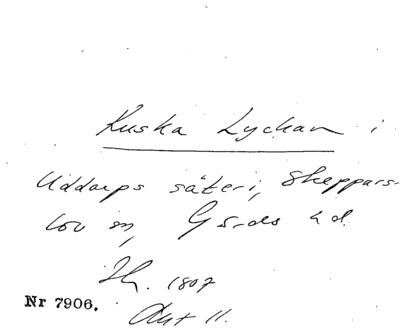 Kuska Lyckan i
Uddarps säteri, Skeppars-
löv sn, Gärds hd.
Lm. 1807
Nr 7906.
Akt 11.